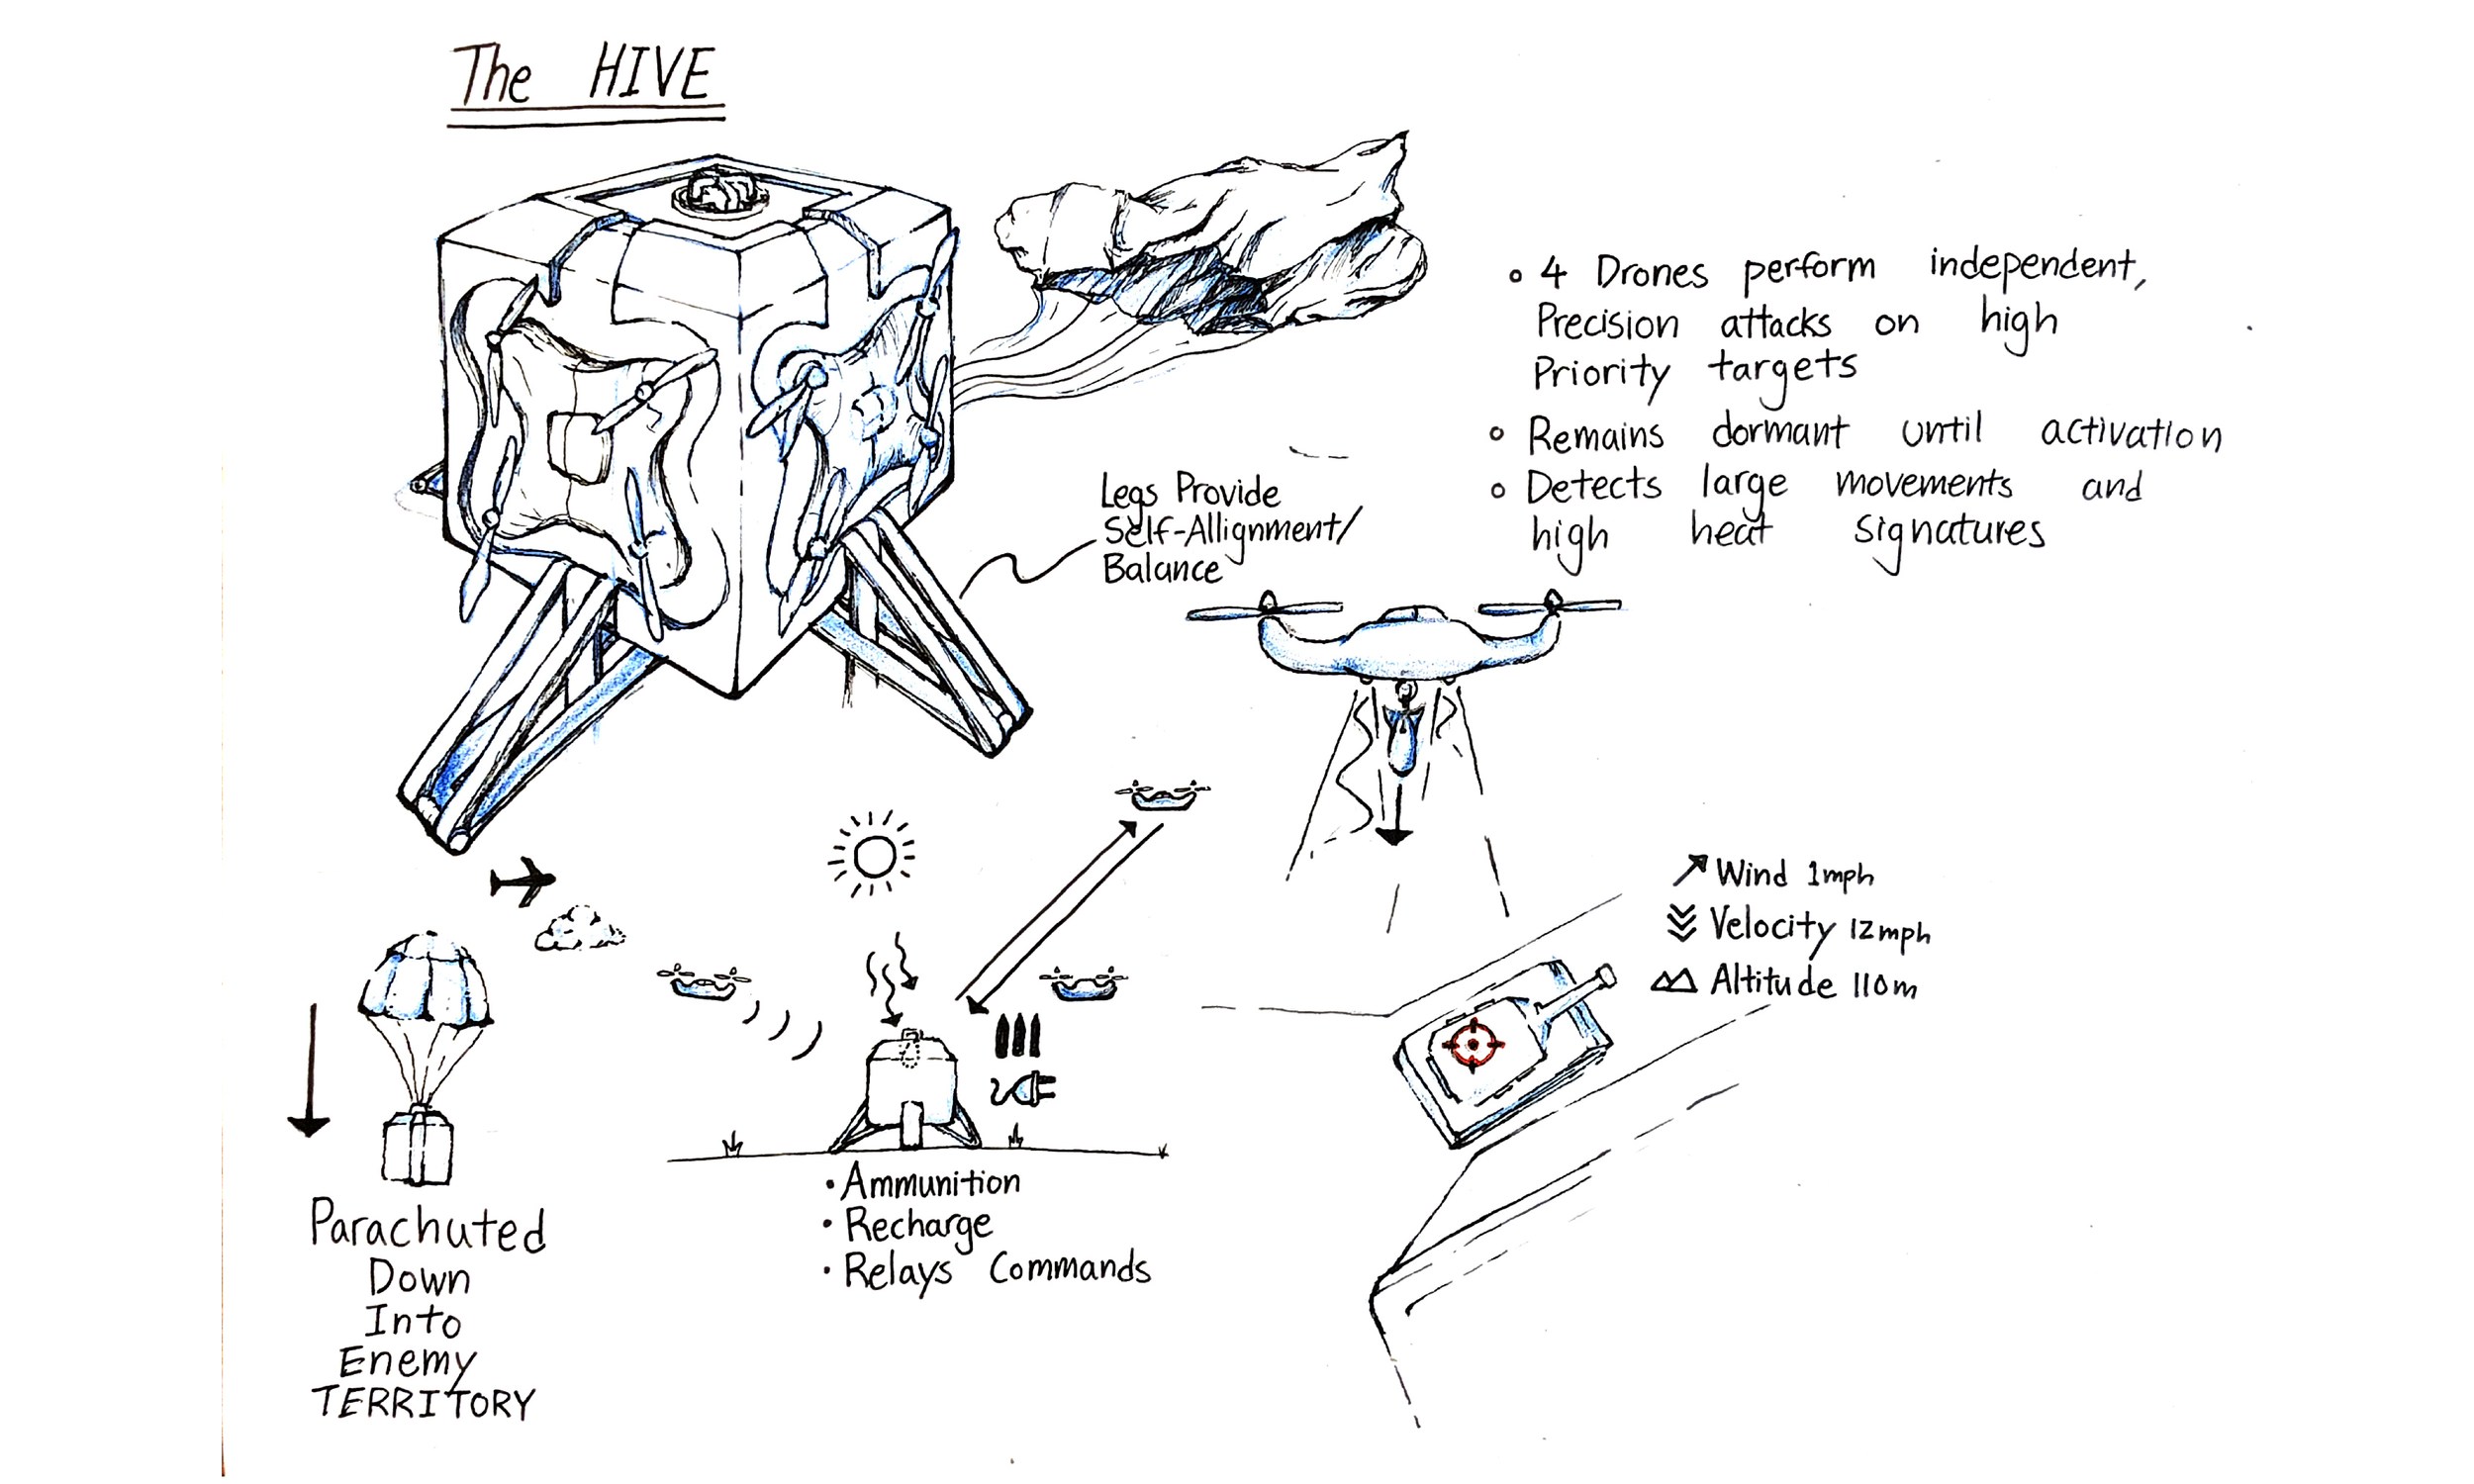 The HIVE
• 4 Drones perform independent,
Precision attacks on high
Priority targets
• Remains dormant until activation
• Detects large movements and
high heat signatures
Legs Provide
Self-Allignment/
Balance
Wind 1mph
Velocity 12mph
Altitude 110m
• Ammunition
• Recharge
• Relays Commands
Parachuted
Down
Into
Enemy
TERRITORY